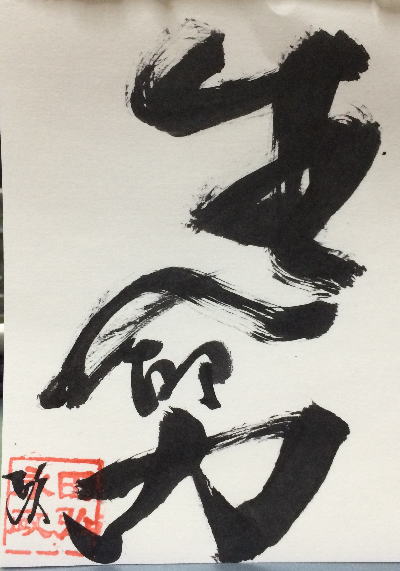 生命力